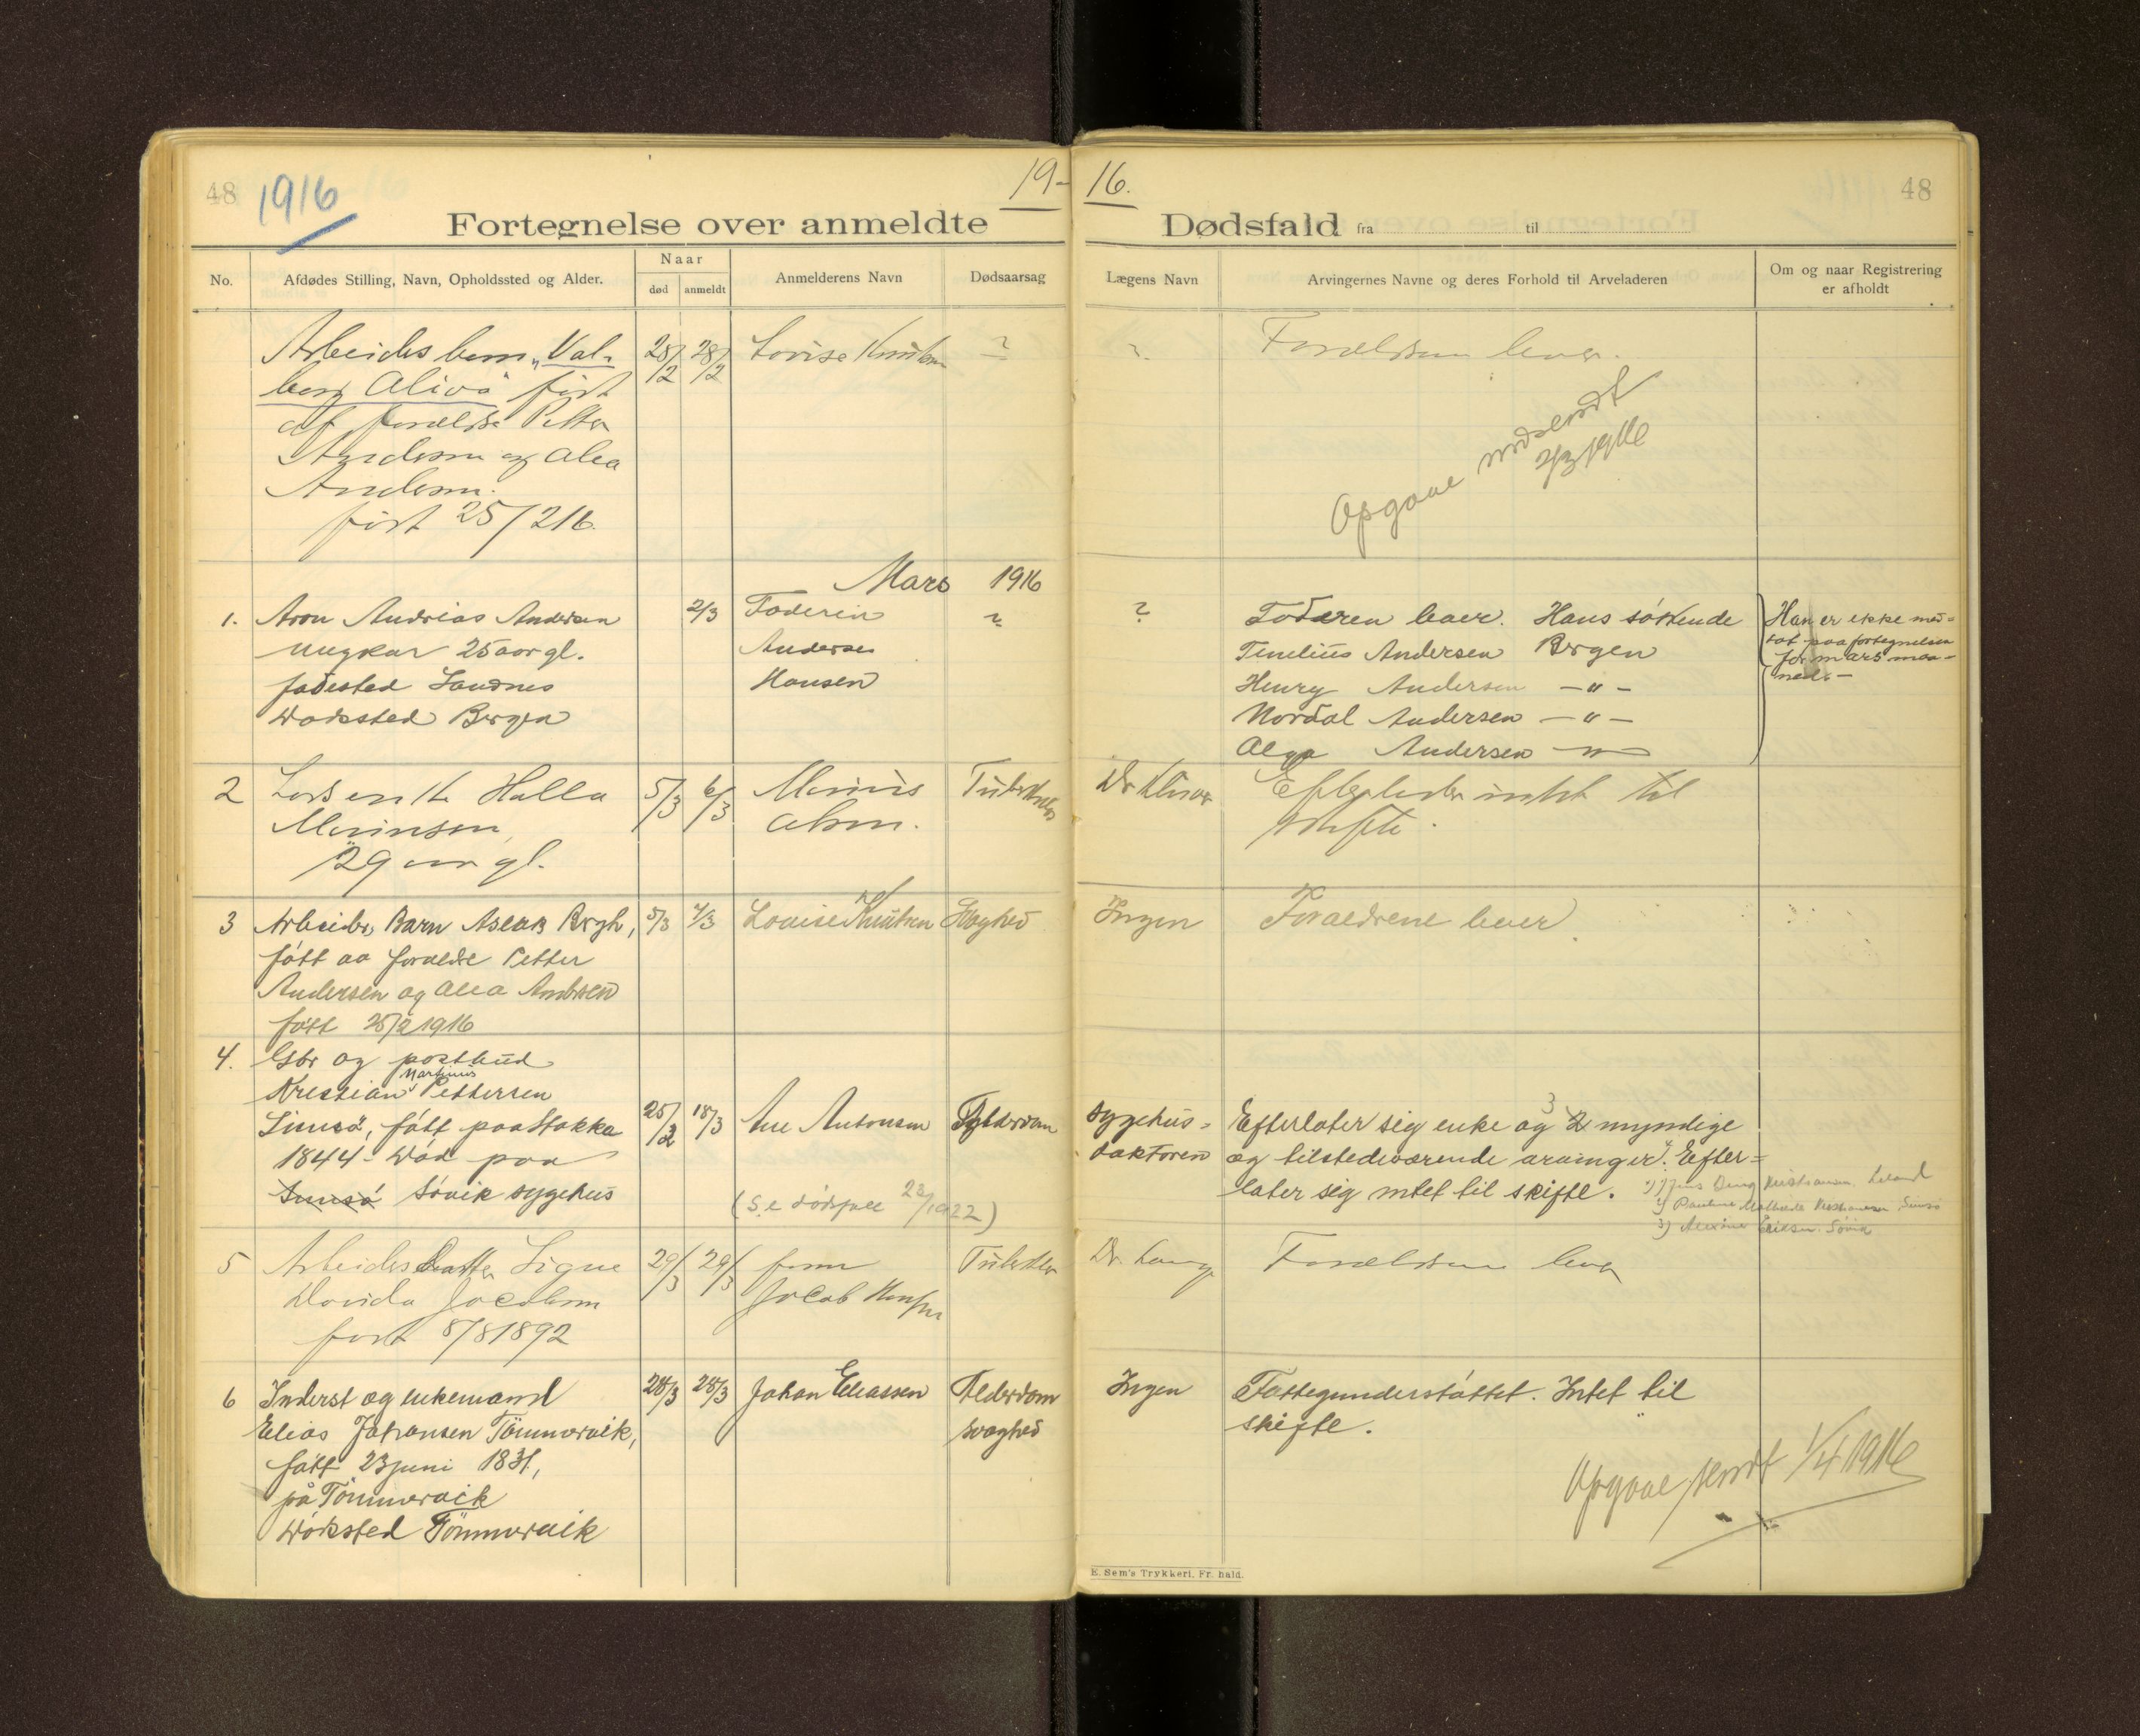 48
1916
19-
16.
48
Fortegnelse over anmeldte
Dødsfald fra til
No.
Afdødes Stilling, Navn, Opholdssted og Alder.
Naar
død
anmeldt
Anmelderens Navn
Dødsaarsag
Lægens Navn
Arvingernes Navne og deres Forhold til Arveladeren
Om og naar Registrering
er afholdt
Arbeidsbarn "Val-
borg Aliva" født
af foreldre Petter
Andersen og Alea
Andersen.
født 25/2 16.
28/2
28/2
Lovise Knutsen
?
?
Foreldrene lever.
Opgave indsendt
2/3 1916
Mars 1916
1.
Aron Andreas Andersen
Ungkar 25 aar gl.
fødested Sandnes
Dødssted Bergen
2/3
Faderen
Anderse
Hansen
?
?
Faderen lever. Hans søskende
Andersen Bergen
Henry Andersen — " —
Nordal Andersen — " —
Alga Andersen — " —
Han er ikke med-
tat paa fortegnelsen
for mars maa-
ned. —
2
Halla
Marinsen,
29 aar gl.
5/3
6/3
Marius
Olsen.
Tuberkulos
Dr Klüver
Efterlader intet til
skifte.
3
Arbeider, Barn Aslak Bergh,
født aa foraeldre Petter
Andersen og Alea Andersen
født 25/2 1916
5/3
7/3
Louise Knutsen
Svaghed
Ingen
Foraeldrene lever.
4.
Gbr og postbud
Martinus
Kristian Pettersen
født paa Stokka
1844 - Død paa
Søvik sygehus
25/2
18/3
Ane Antonsen
Alderdom
sygehus-
doktoren
3
Efterlater sig enke og 2 myndige
og tilstedeværende arvinger. Efter-
later sig intet til skifte.
1) Jens Kristiansen. Leland
2) Pauline Mathilde Kristiansen
3) Eriksen. Søvik
(Se dødsfall 23/1922)
5
Arbeidsdatter Signe
Davida Jacobsen
født 8/8 1892
29/3
29/3
Jacob
Tuberkler
Dr. Lange
Foreldrene lever
6
Inderst og enkemand
Elias Johansen Tömmervik,
født 23 juni 1831,
på Tömmervik
Dødssted Tömmervik
28/3
28/3
Johan Eliassen
Alderdom
svaghed
Ingen
Fattigunderstøttet. Intet til
skifte.
Opgave sendt 1/4 1916
E. Sem's Trykkeri, Fr. hald.